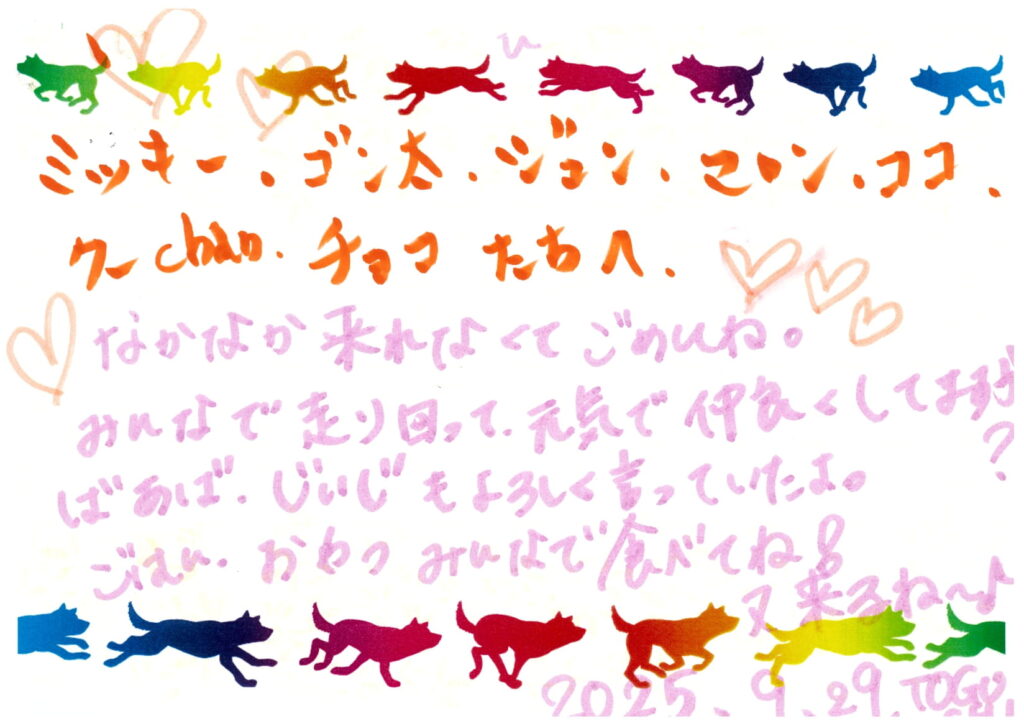 ミッキー、ゴン太、ジョン、マロン、ココ、
クーchan.チョコ たちへ、
なかなか来れなくてごめんね。
みんなで走り回って、元気で仲良くしてますか?
ばあば、じいじもよろしく言っていたよ。
ごはん、おやつ みんなで食べてね
又来るね〜♪
2025.9.29